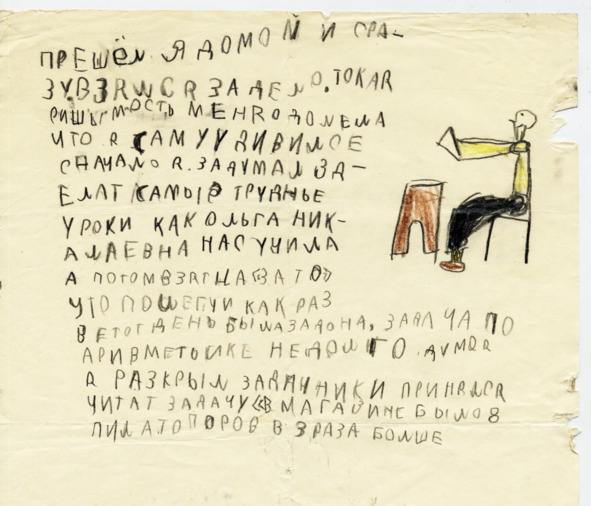 ПРЕШЁЛ Я ДОМОЙ И СРА-
ЗУ ВЗЯЛСЯ ЗА ДЕЛО. ТОКАЯ
РИШЫМОСТЬ МЕНЯ ОДОЛЕЛА
ЧТО Я САМ УУДИВИЛСЕ
СНАЧАЛО Я ЗАДУМАЛ ЗД-
ЕЛАТ САМЫЕ ТРУДНЫЕ
УРОКИ КАК ОЛЬГА НИК-
АЛАЕВНА НАС УЧИЛА
А ПОТОМ ВЗЯТЦА ЗА ТО
ЧТО ПОЛЕГЧИ КАК РАЗ
В ЕТОТ ДЕНЬ БЫЛА ЗАДАНА, ЗАДАЧА ПО
АРИВМЕТЫИКЕ НЕДОЛГО ДУМАЯ
Я РАЗКРЫЛ ЗАДАЧНИК И ПРИНЯЛСЯ
ЧИТАТ ЗАДАЧУ «В МАГАЗИНЕ БЫЛО 8
ПИЛ А ТОПОРОВ В 3 РАЗА БОЛШЕ